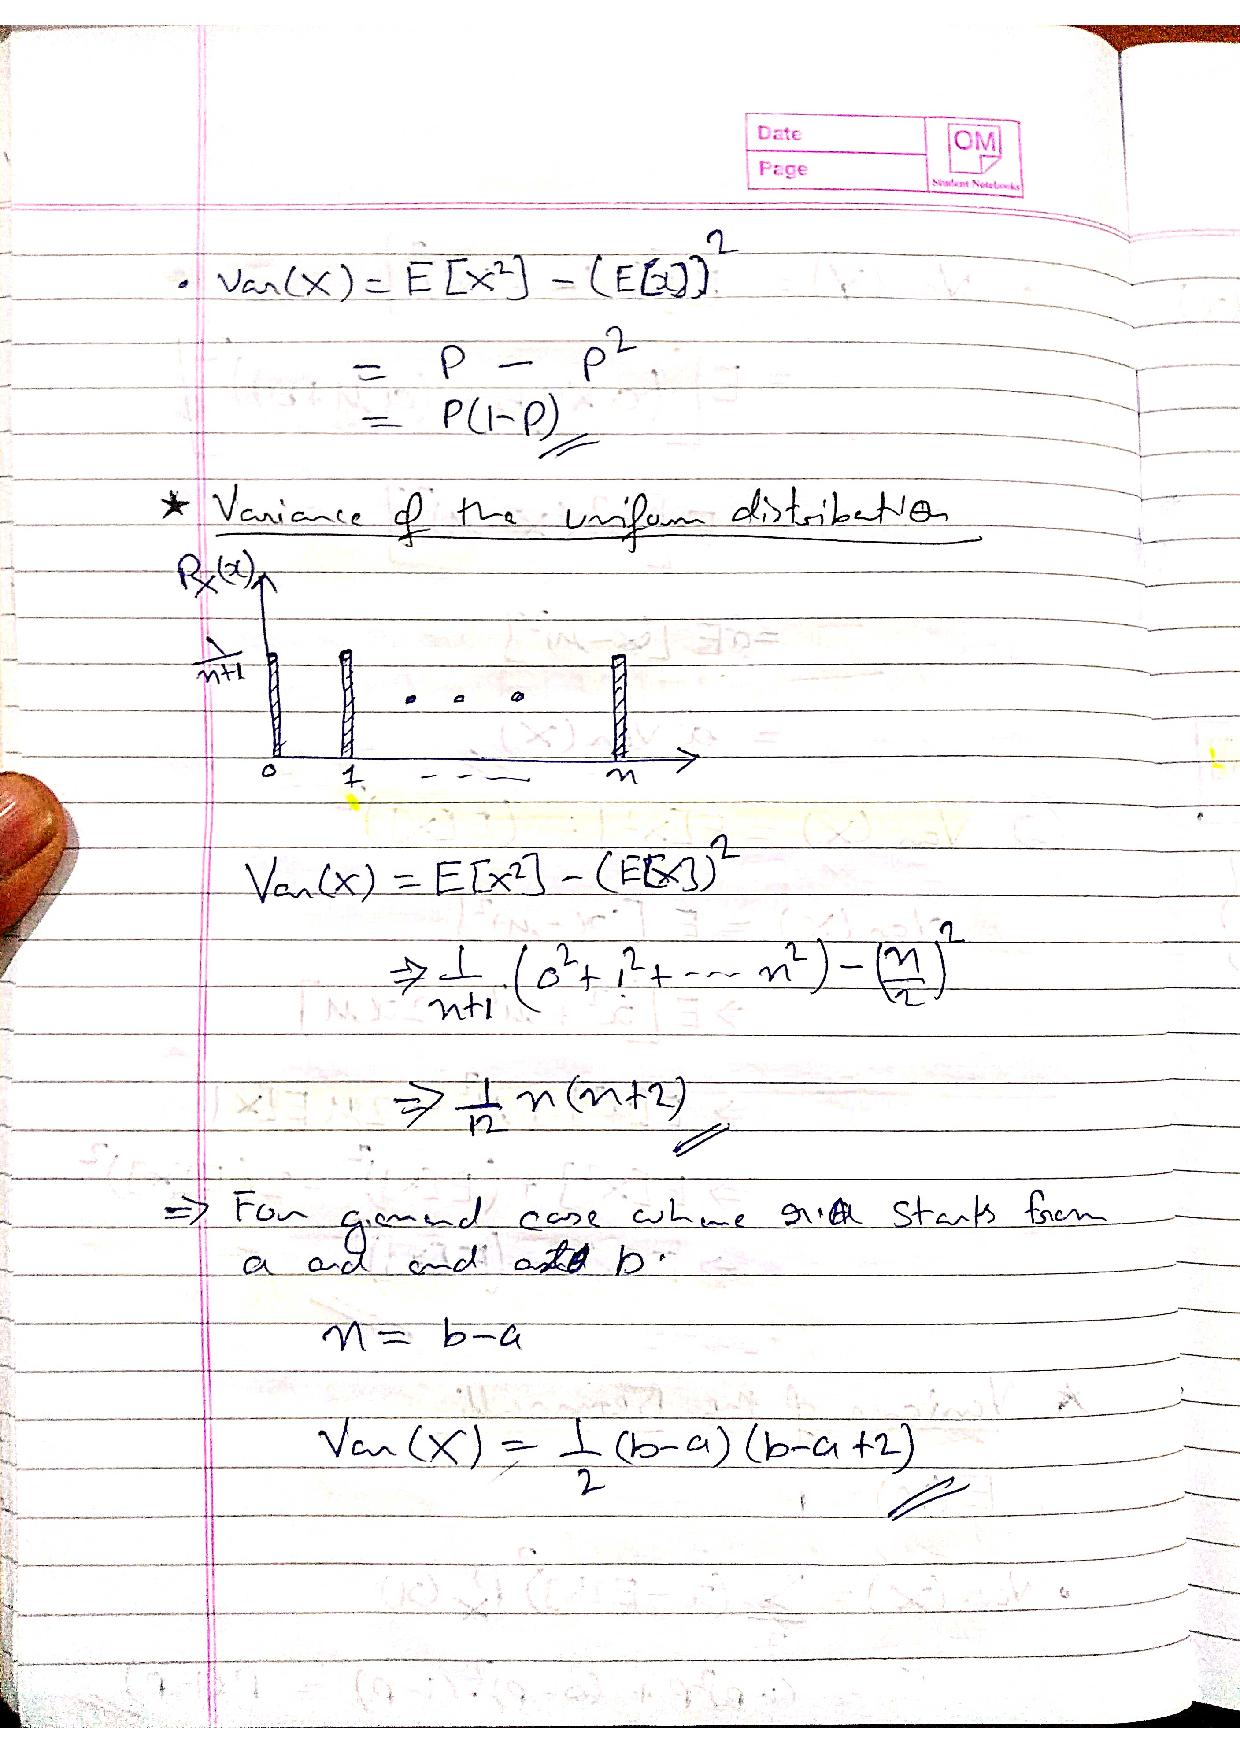 Date
OM
Page
Student Notebooks
• Var(X) = E[X²] - (E[x])²
= P - P²
= P(1-P)
★ Variance of the uniform distribution
Pₓ(x)
1/n+1
0 1 ---- n
Var(X) = E[X²] - (E[X])²
⇒ 1/n+1 (0²+1²+---- n²) - (n/2)²
⇒ 1/12 n(n+2)
⇒ For general case where starts from
a and end b.
n = b-a
Var(X) = 1/2 (b-a)(b-a+2)